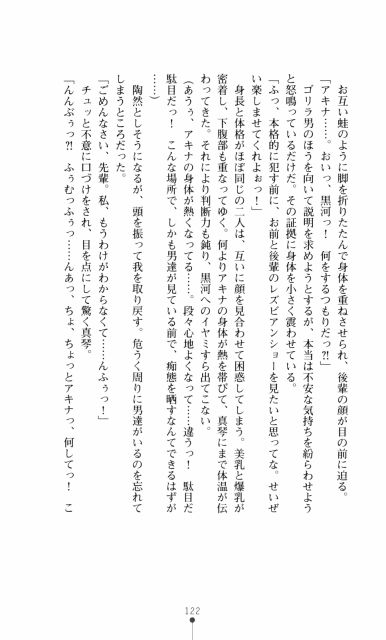 お互い蛙のように脚を折りたたんで身体を重ねさせられ、後輩の顔が目の前に迫る。
「アキナ……。おいっ、黒河っ！　何をするつもりだっ?!」
ゴリラ男のほうを向いて説明を求めようとするが、本当は不安な気持ちを紛らわせよう
と怒鳴っているだけだ。その証拠に身体を小さく震わせている。
「ふっ、本格的に犯す前に、お前と後輩のレズビアンショーを見たいと思ってな。せいぜ
い楽しませてくれよぉっ！」
身長と体格がほぼ同じの二人は、互いに顔を見合わせて困惑してしまう。美乳と爆乳が
密着し、下腹部も重なってゆく。何よりアキナの身体が熱を帯びて、真琴にまで体温が伝
わってきた。それにより判断力も鈍り、黒河へのイヤミすら出てこない。
（あうぅ、アキナの身体が熱くなってる……。段々心地よくなって……違うっ！　駄目だ
駄目だっ！　こんな場所で、しかも男達が見ている前で、痴態を晒すなんてできるはずが
……）
陶然としそうになるが、頭を振って我を取り戻す。危うく周りに男達がいるのを忘れて
しまうところだった。
「ごめんなさい、先輩。私、もうわけがわからなくて……んふぅっ！」
チュッと不意に口づけをされ、目を点にして驚く真琴。
「んんぶぅっ?!　ふぅむっふぅっ……んあっ、ちょ、ちょっとアキナっ、何してっ！　こ
122